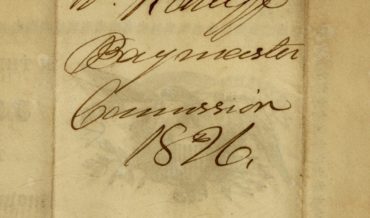 Paymaster
Commission
1826.